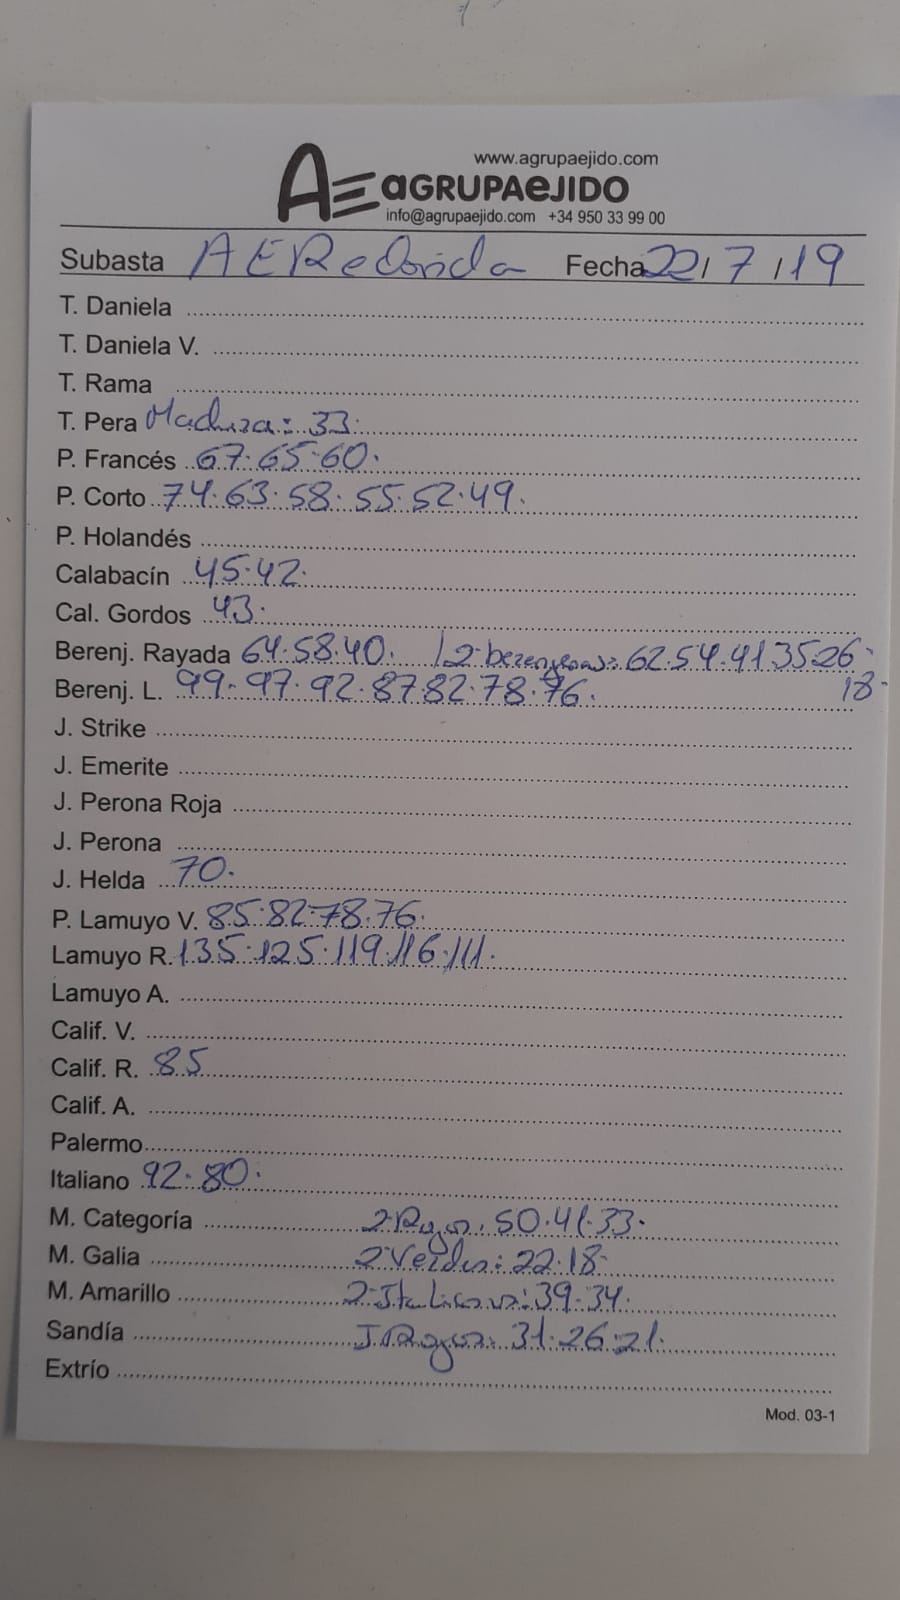 www.agrupaejido.com
AE aGRUPAeJIDO
info@agrupaejido.com +34 950 33 99 00
Subasta AERedonda Fecha 22/7/19
T. Daniela
T. Daniela V.
T. Rama
T. Pera Madura: 33.
P. Francés 67.65.60.
P. Corto 74.63.58.55.52.49.
P. Holandés
Calabacín 45.42.
Cal. Gordos 43.
Berenj. Rayada 64.58.40. | 2 berenjenas: 62.54.41.35.26.
Berenj. L. 99.97.92.87.82.78.76. 18.
J. Strike
J. Emerite
J. Perona Roja
J. Perona
J. Helda 70.
P. Lamuyo V. 85.82.78.76.
Lamuyo R. 135.125.119.116.111.
Lamuyo A.
Calif. V.
Calif. R. 85
Calif. A.
Palermo
Italiano 92.80.
M. Categoría 2 Rojos: 50.41.33.
M. Galia 2 Verdes: 22.18.
M. Amarillo 2 Italianos: 39.34.
Sandía I. Rojos: 31.26.21.
Extrío
Mod. 03-1